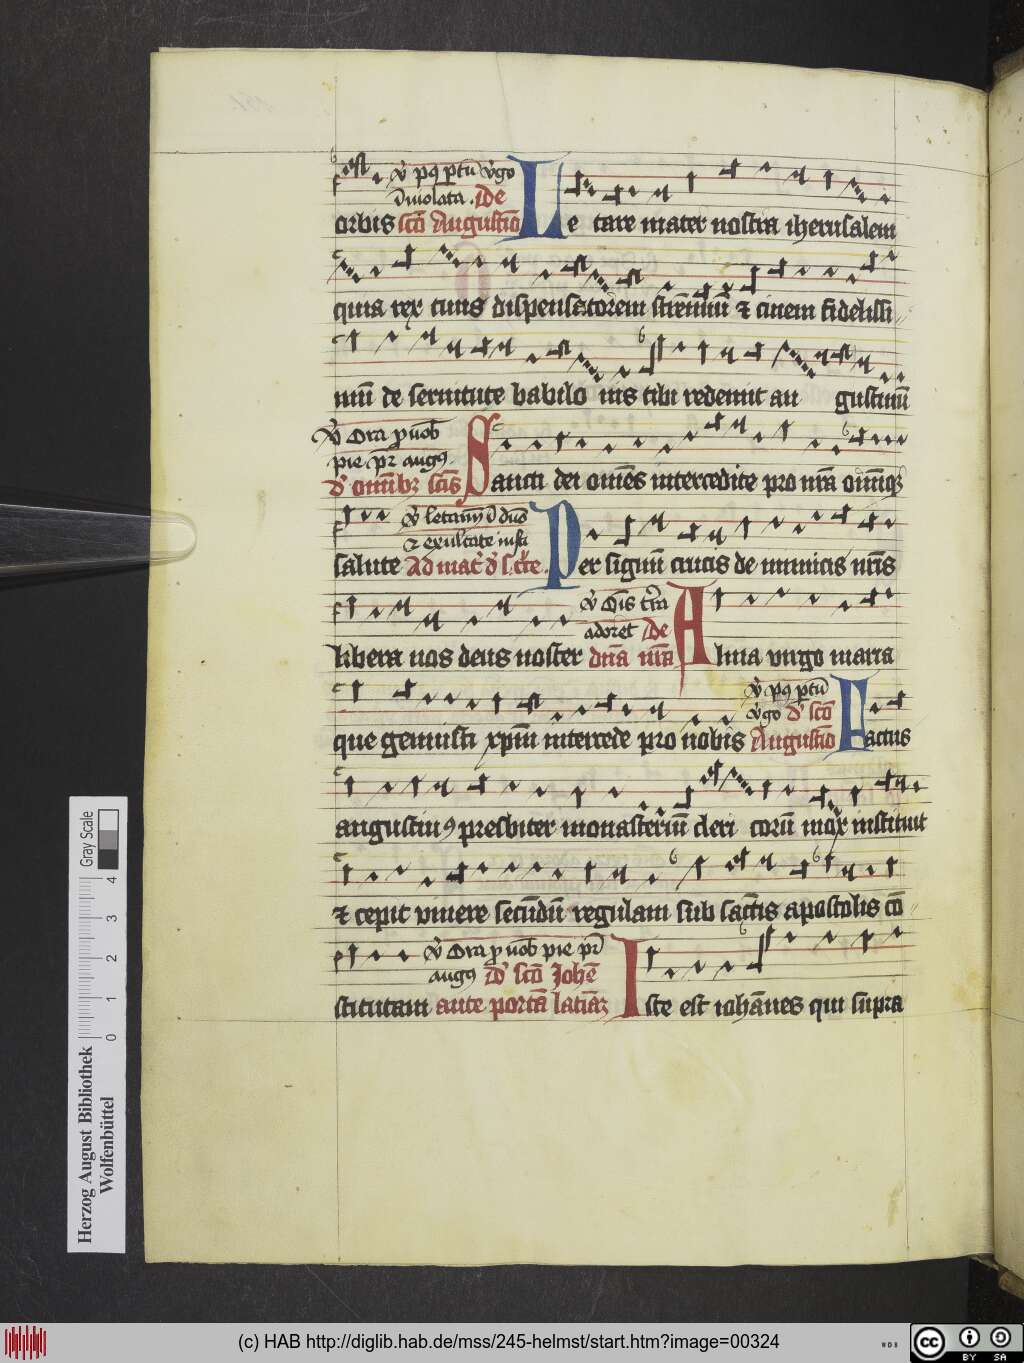 ℣ p9 ꝑtū v̾go
īuiolata . De
orbis sc̄o Augustīo Le tare mater nostra iherusalem
quia rex tuus dispensatorem strēnuū ⁊ ciuem fidelissi
mū de seruitute babilo nis tibi redemit au gustinū
℣ Ora ꝓ nob̄
pie pr̄ augꝰ
d' omībꝫ scīs Sancti dei om̄es intercedite pro nr̄a om̄iūqꝫ
℣ letamī ī dn̄o
⁊ exultate iusti
salute Ad mat' d' s. cr̄ce . Per signū crucis de inimicis nr̄is
℣ Om̄is tr̄ra
adoret De
libera nos deus noster dn̄a nr̄a Alma virgo maria
℣ p9 ꝑtū
v̾go d' sc̄o
que genuisti xp̄m intercede pro nobis Augustīo Factus
augustinꝰ presbiter monasteriū cleri corū mox instituit
⁊ cepit viuere secūdū regulam sub sanctis apostolis cō
℣ Ora ꝓ nob̄ pie pr̄
augꝰ D' sc̄o Johē
stitutam ante portā latinā Iste est iohānes qui supra
Herzog August Bibliothek
Wolfenbüttel
0 1 2 3 4
Gray Scale
(c) HAB http://diglib.hab.de/mss/245-helmst/start.htm?image=00324
WDB
cc BY SA